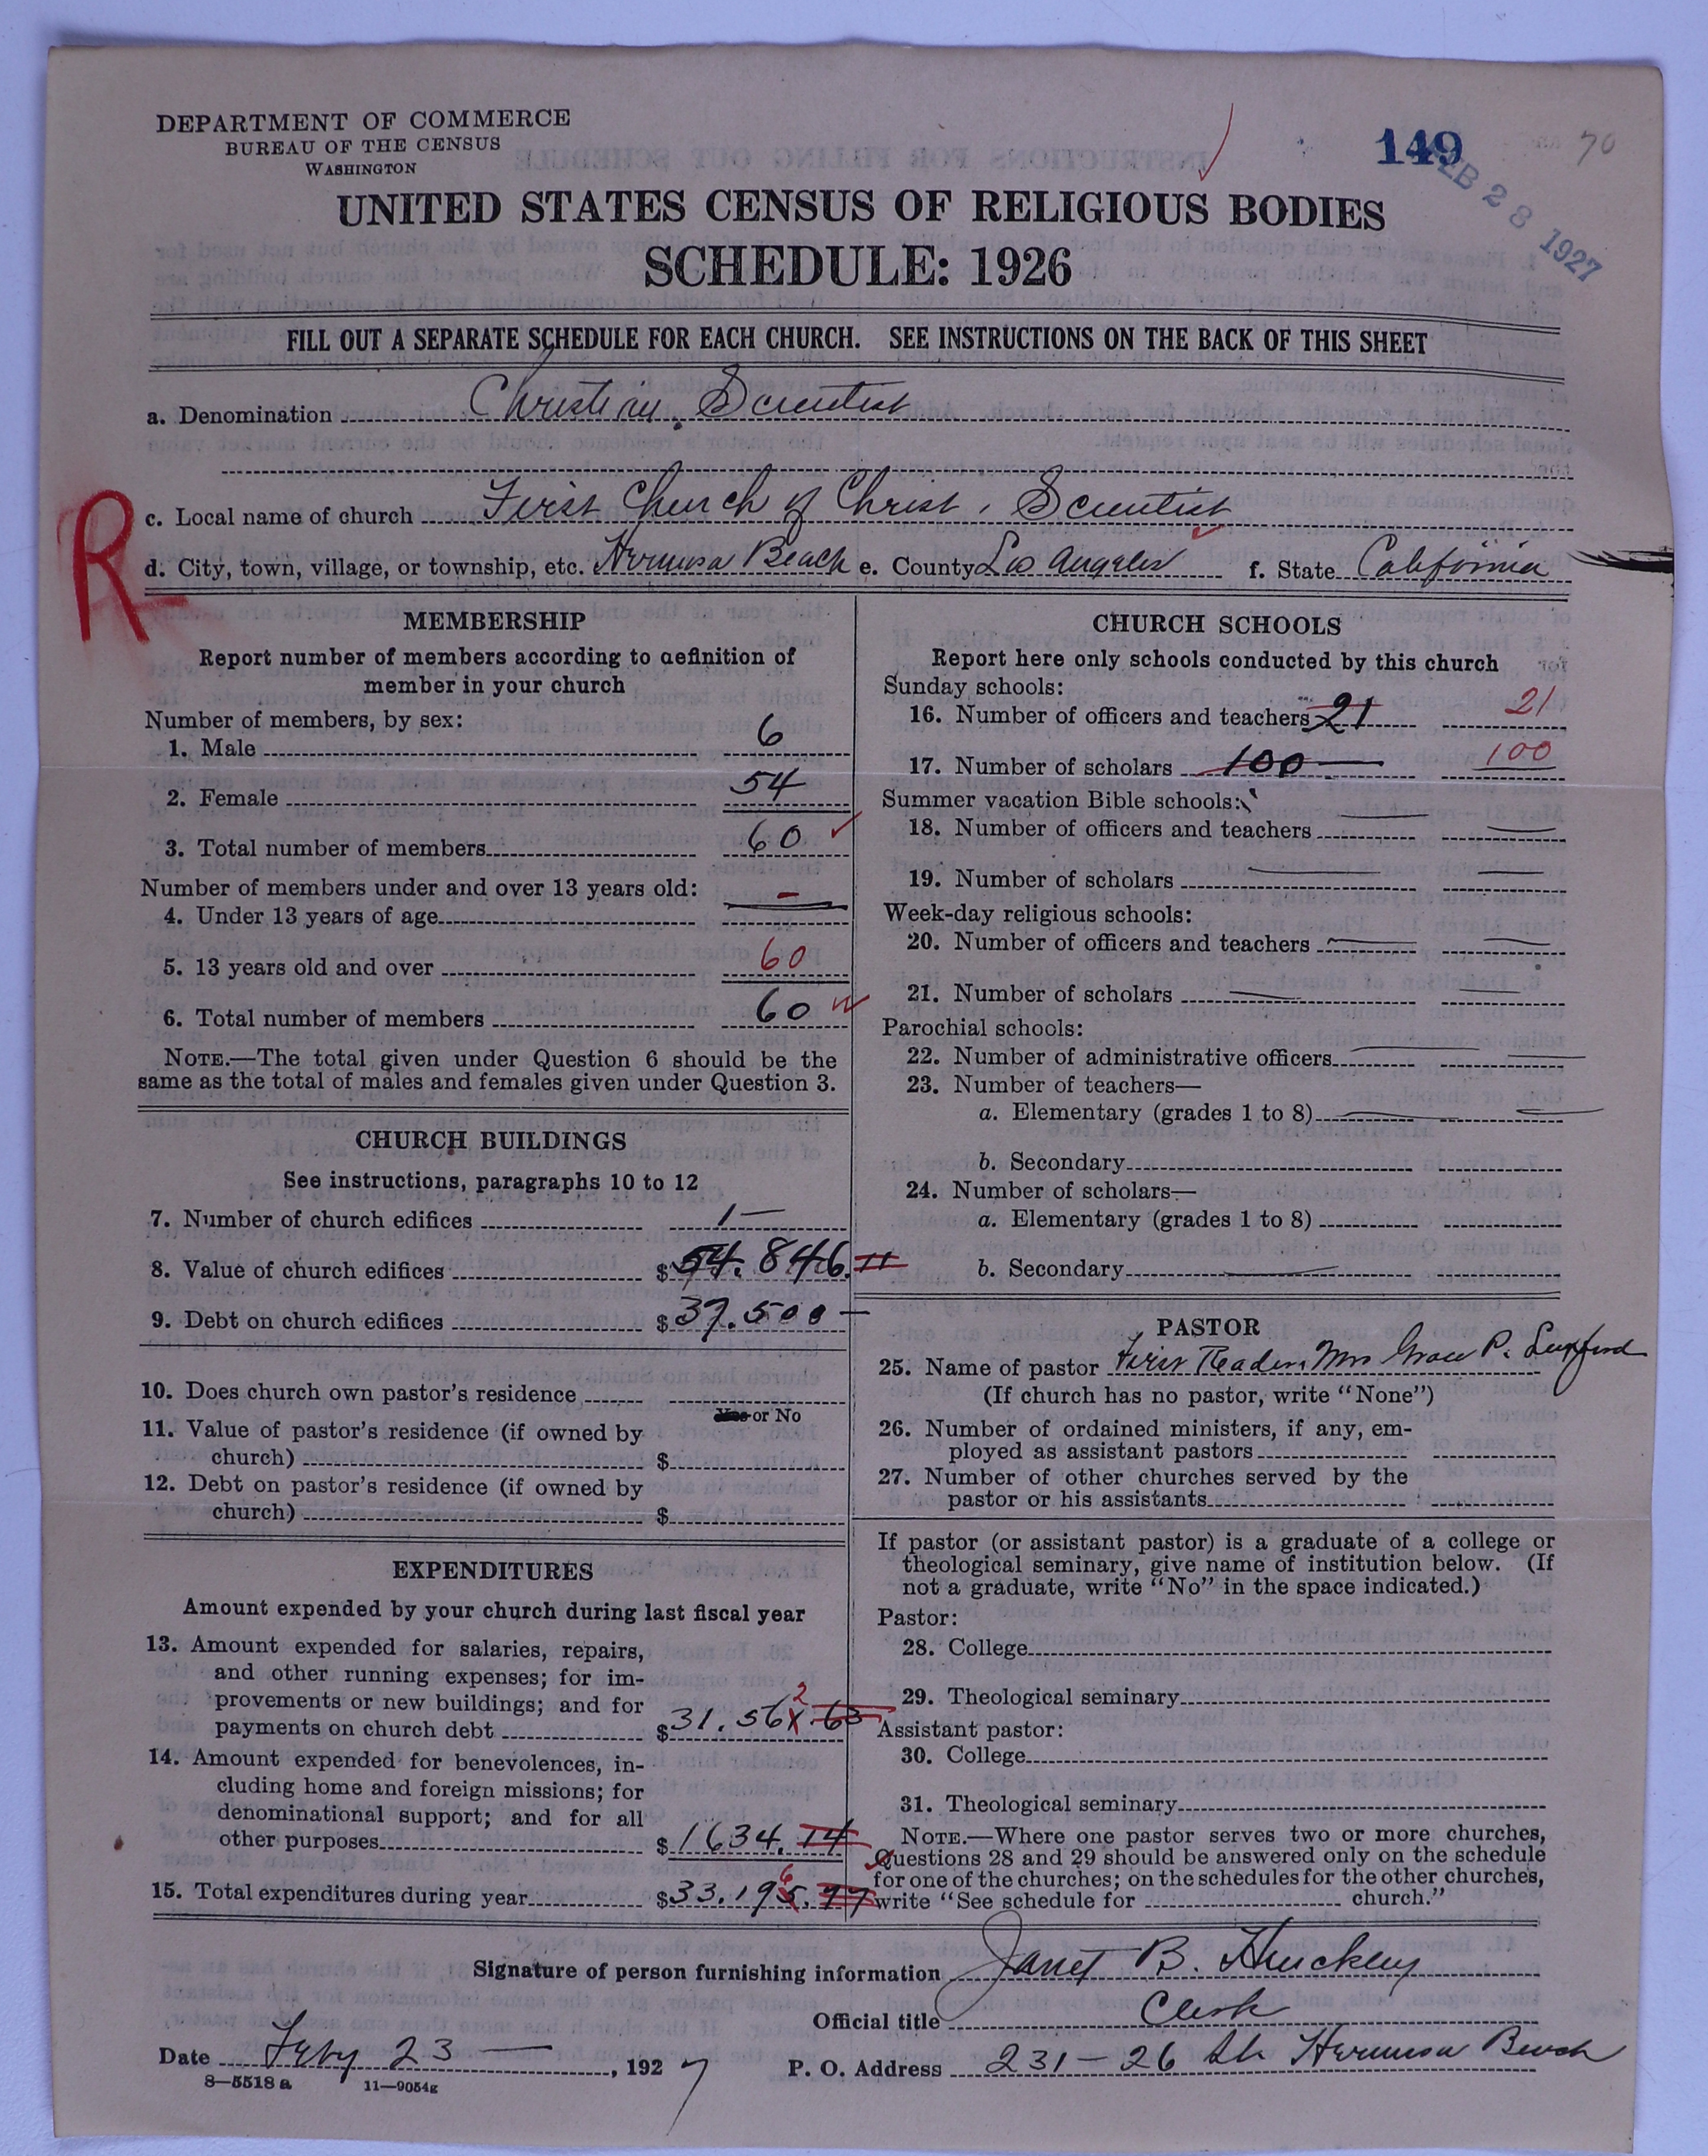 DEPARTMENT OF COMMERCE
BUREAU OF THE CENSUS
WASHINGTON
149
70
FEB 28 1927
UNITED STATES CENSUS OF RELIGIOUS BODIES
SCHEDULE: 1926
FILL OUT A SEPARATE SCHEDULE FOR EACH CHURCH. SEE INSTRUCTIONS ON THE BACK OF THIS SHEET
a. Denomination Christian Scientist
R
c. Local name of church First Church of Christ, Scientist
d. City, town, village, or township, etc. Hermosa Beach e. County Los Angeles f. State California
MEMBERSHIP
Report number of members according to definition of
member in your church
Number of members, by sex:
1. Male 6
2. Female 54
3. Total number of members 60
Number of members under and over 13 years old:
4. Under 13 years of age —
5. 13 years old and over 60
6. Total number of members 60
NOTE.—The total given under Question 6 should be the
same as the total of males and females given under Question 3.
CHURCH BUILDINGS
See instructions, paragraphs 10 to 12
7. Number of church edifices 1—
8. Value of church edifices $54.846.11
9. Debt on church edifices $37.500—
10. Does church own pastor's residence
Yes or No
11. Value of pastor's residence (if owned by
church) $
12. Debt on pastor's residence (if owned by
church) $
EXPENDITURES
Amount expended by your church during last fiscal year
13. Amount expended for salaries, repairs,
and other running expenses; for im-
provements or new buildings; and for
payments on church debt $31.561.63
2
14. Amount expended for benevolences, in-
cluding home and foreign missions; for
denominational support; and for all
other purposes $1634.14
15. Total expenditures during year $33.195.77
6
CHURCH SCHOOLS
Report here only schools conducted by this church
Sunday schools:
16. Number of officers and teachers 21 21
17. Number of scholars 100— 100
Summer vacation Bible schools:
18. Number of officers and teachers
19. Number of scholars
Week-day religious schools:
20. Number of officers and teachers
21. Number of scholars
Parochial schools:
22. Number of administrative officers
23. Number of teachers—
a. Elementary (grades 1 to 8)
b. Secondary
24. Number of scholars—
a. Elementary (grades 1 to 8)
b. Secondary
PASTOR
25. Name of pastor First Reader Mrs Grace P.
(If church has no pastor, write "None")
26. Number of ordained ministers, if any, em-
ployed as assistant pastors
27. Number of other churches served by the
pastor or his assistants
If pastor (or assistant pastor) is a graduate of a college or
theological seminary, give name of institution below. (If
not a graduate, write "No" in the space indicated.)
Pastor:
28. College
29. Theological seminary
Assistant pastor:
30. College
31. Theological seminary
NOTE.—Where one pastor serves two or more churches,
Questions 28 and 29 should be answered only on the schedule
for one of the churches; on the schedules for the other churches,
write "See schedule for church."
Signature of person furnishing information Janet B. Hinckley
Official title Clerk
Date Feby 23—, 1927 P. O. Address 231-26 St Hermosa Beach
8—5518 a 11—9054g